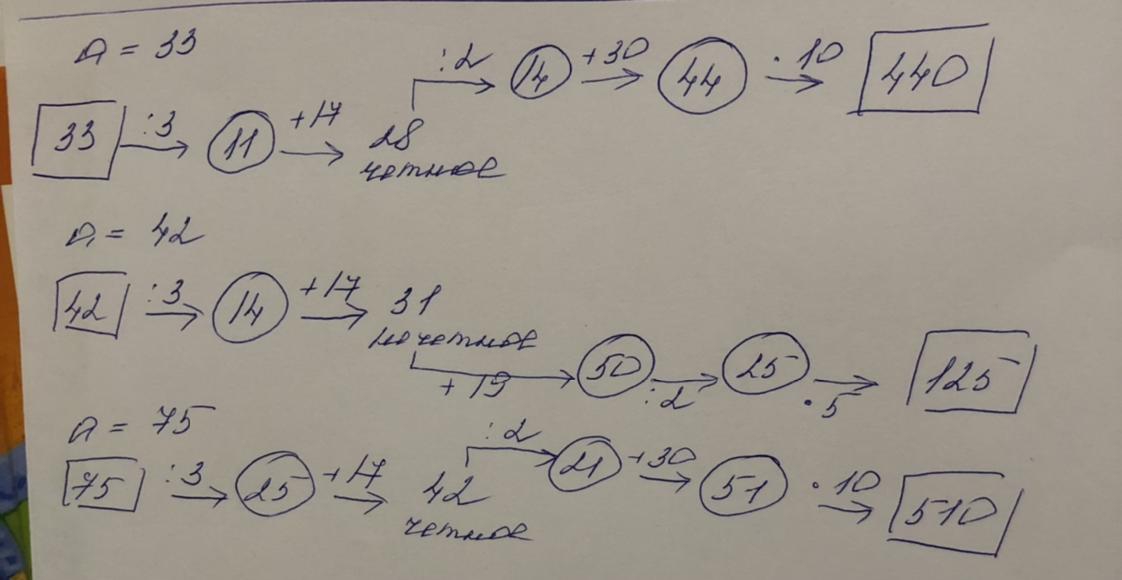 a = 33
:2 14 +30 44 · 10 440
33 :3 11 +17 28
четное
a = 42
42 :3 14 +17 31
нечетное
+19 50 :2 25 · 5 125
a = 75
:2 21 +30 51 · 10 510
75 :3 25 +17 42
четное